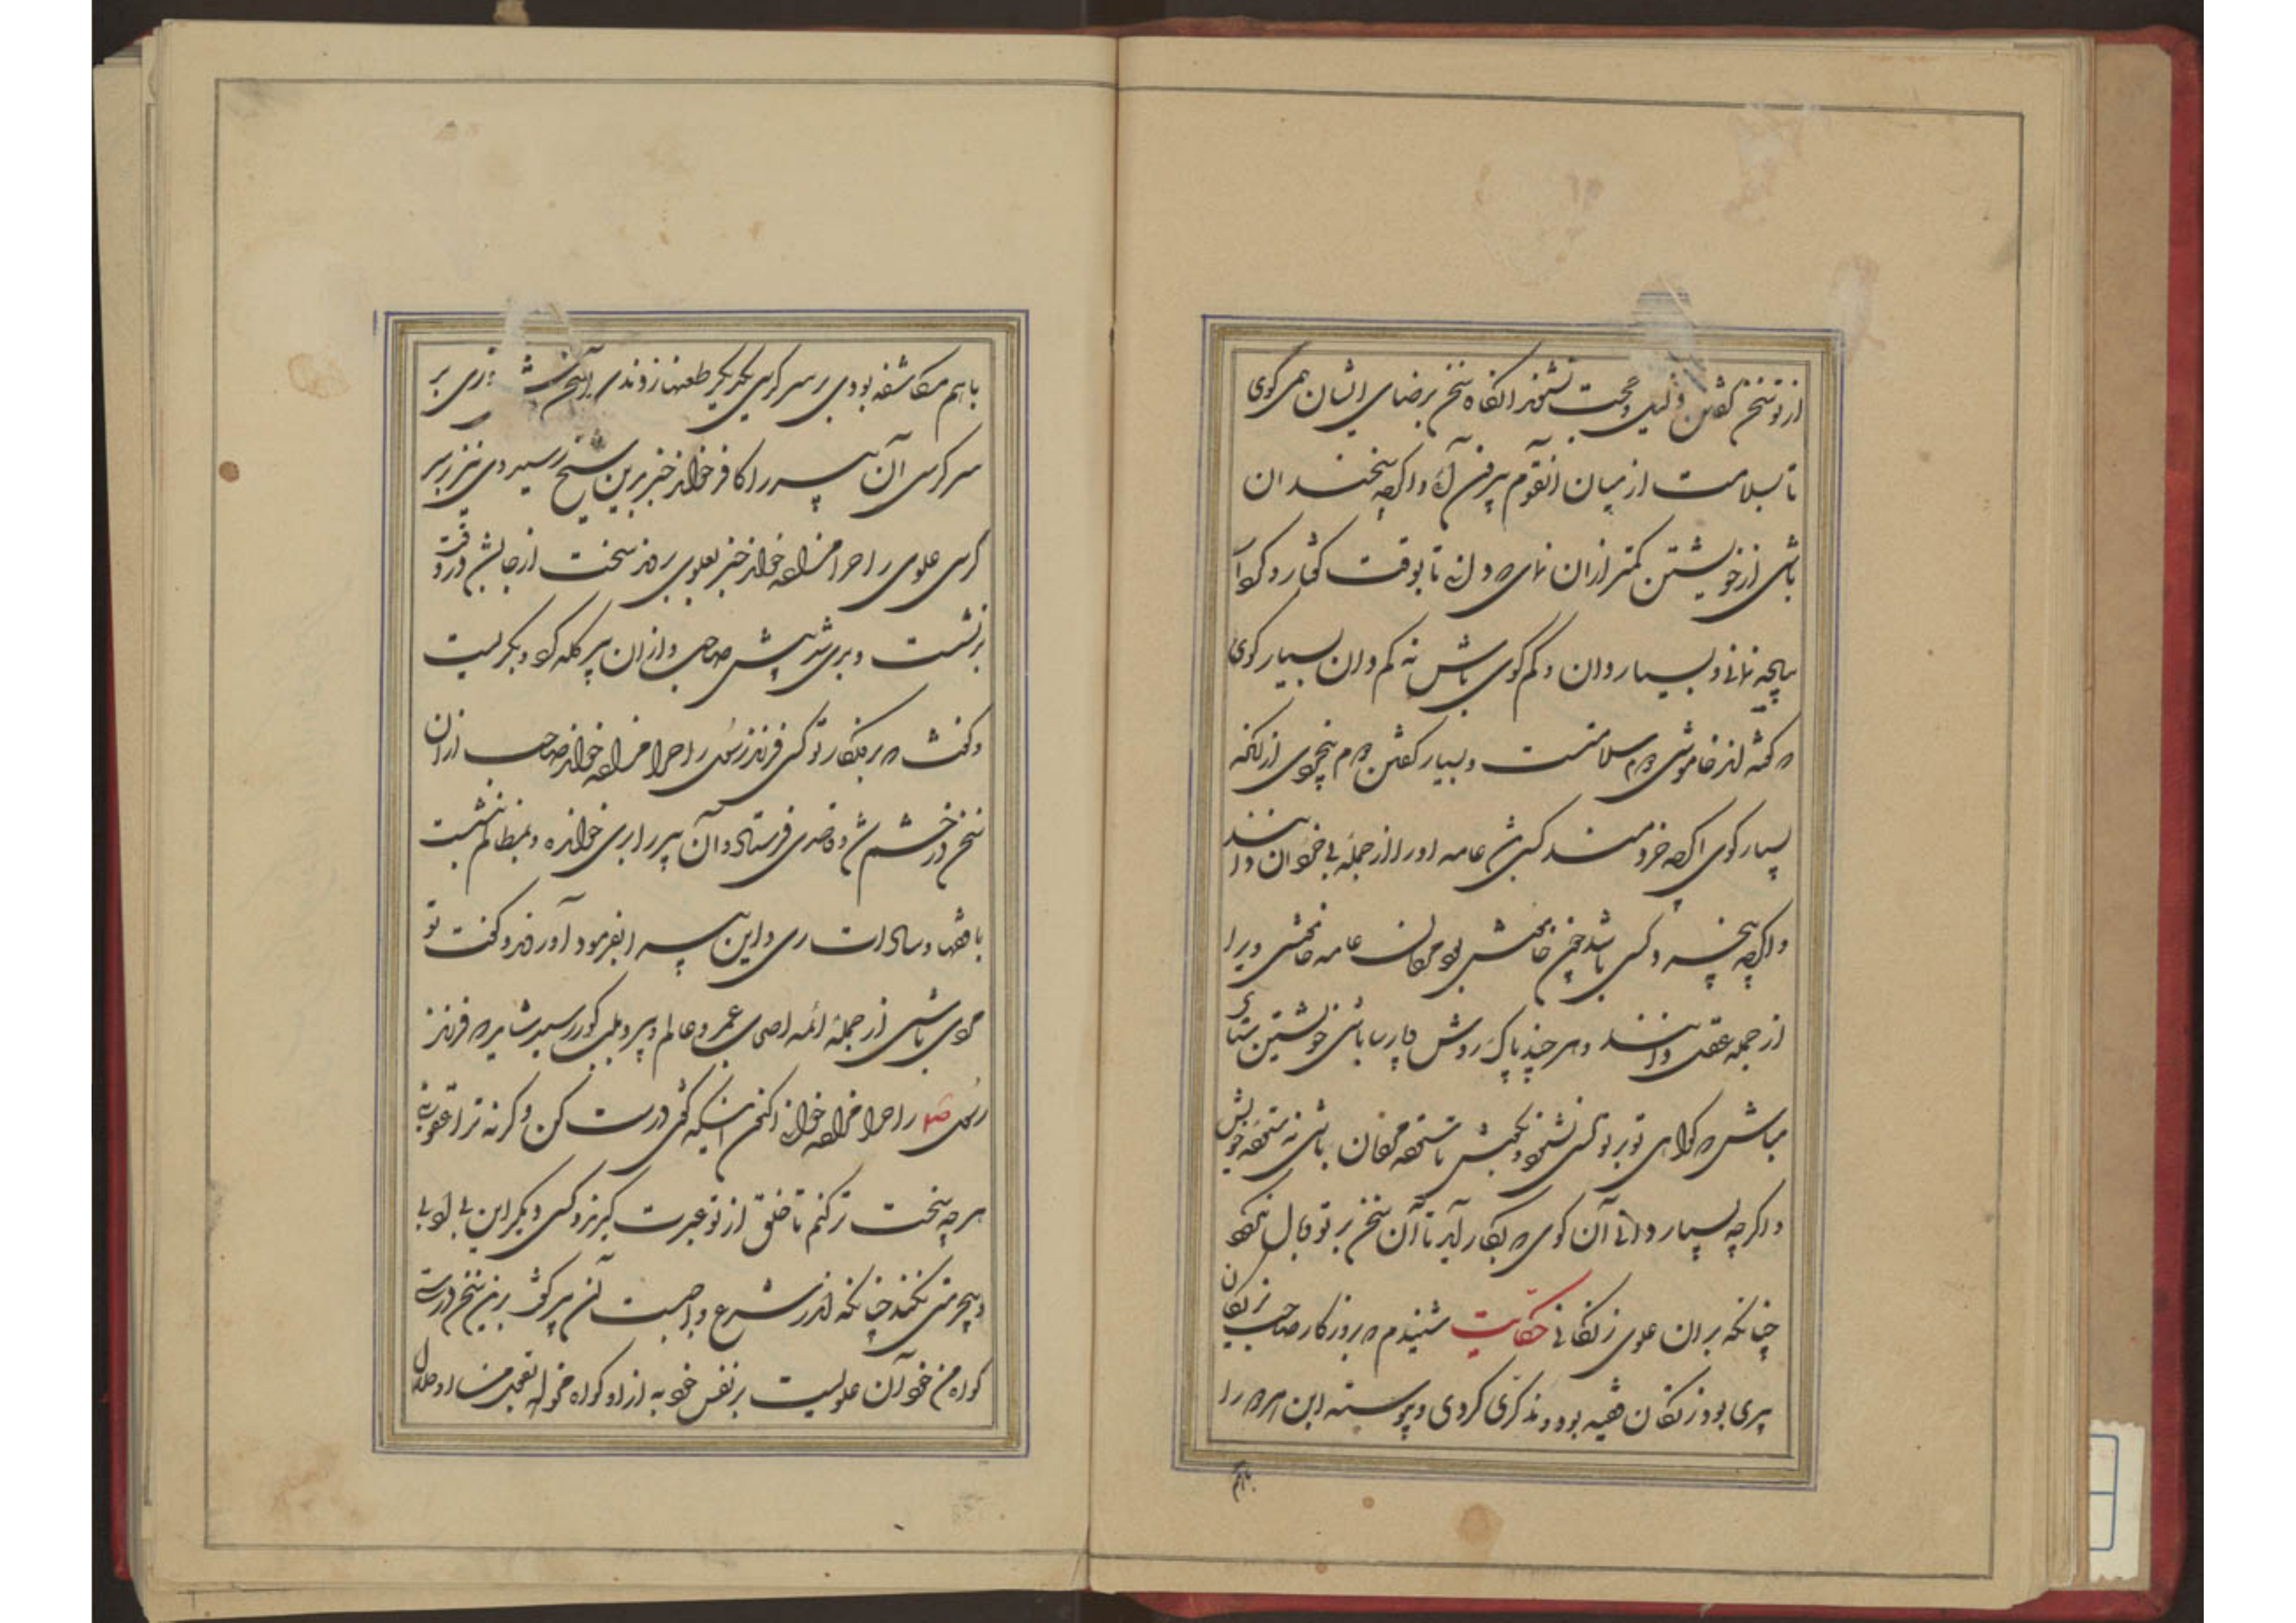 از تو سخن گفتن و دلیل و حجت نشنوند انگاه سخن برضای ایشان همی گوی
تا بسلامت از میان آنقوم بیرون آئی و اگرچه سخندان
باشی از خویشتن کمتر از آن نمای که دانی تا بوقت گفتار و کردار
پیاده نمانی و بسیار دان و کم گوی باش نه کم دان بسیار گوی
که گفته اند خاموشی دوم سلامتست و بسیار گفتن دوم بیخردی از انکه
بسیار گوی اگرچه خردمند کسی باشد عامه او را از جمله بی خردان دانند
و اگرچه بیخرد کسی باشد چون خاموش بود مردمان عامه خامشی ویرا
از جمله عقل دانند و هر چند پاک روش و پارسا باشی خویشتن ستای
مباش که گواهی تو بر تو کسی نشنود و بکوش تا ستوده مردمان باشی نه ستوده خویش
و اگر چه بسیار دانی آن گوی که بکار آید تا آن سخن بر تو وبال نگردد
چنانکه بران علوی زنگانی حکایت شنیدم که بروزگار صاحب بزنگان
پیری بود زنگان فقیه بود و مذکری کردی و پیوسته این هر دو را
باهم
باهم مکاشفه بودی بر سر کرسی یکدیگر طعنها زدندی این سخن روزی بر
سر کرسی آن پسر را کافر خواند خبر برین شیخ رسید وی نیز بر سر
کرسی علوی را حرامزاده خواند خبر بعلوی بردند سخت از جای بشد در وقت
برنشست و بری شد پیش صاحب و از ان پیر گله کرد و بگریست
و گفت که بروزگار تو کسی فرزند رسول را حرامزاده خواند صاحب ازان
سخن در خشم شد و قاصدی فرستاد و آن پیر را بری خوانده و بمظالم نشست
با فقها و سادات ری و این پیر را بفرمود آوردند و گفت تو
مردی باشی از جمله ائمه اصحابی عمر و عالم و پیر و بلب گور رسید شاید که فرزند
رسول صلم را حرامزاده خوانی اکنون اینکه گفتی درست کن و گرنه ترا عقوبتی
هر چه سخت تر کنم تا خلق از تو عبرت گیرند و کسی دیگر این بی ادبی
و بیحرمتی نکنند چنانکه اندر شرع واجبست آن پیر گفت برین سخن درستی
گواه من خود آن علویست بر نفس خود به از او گواه مخواه بقول من او حلال